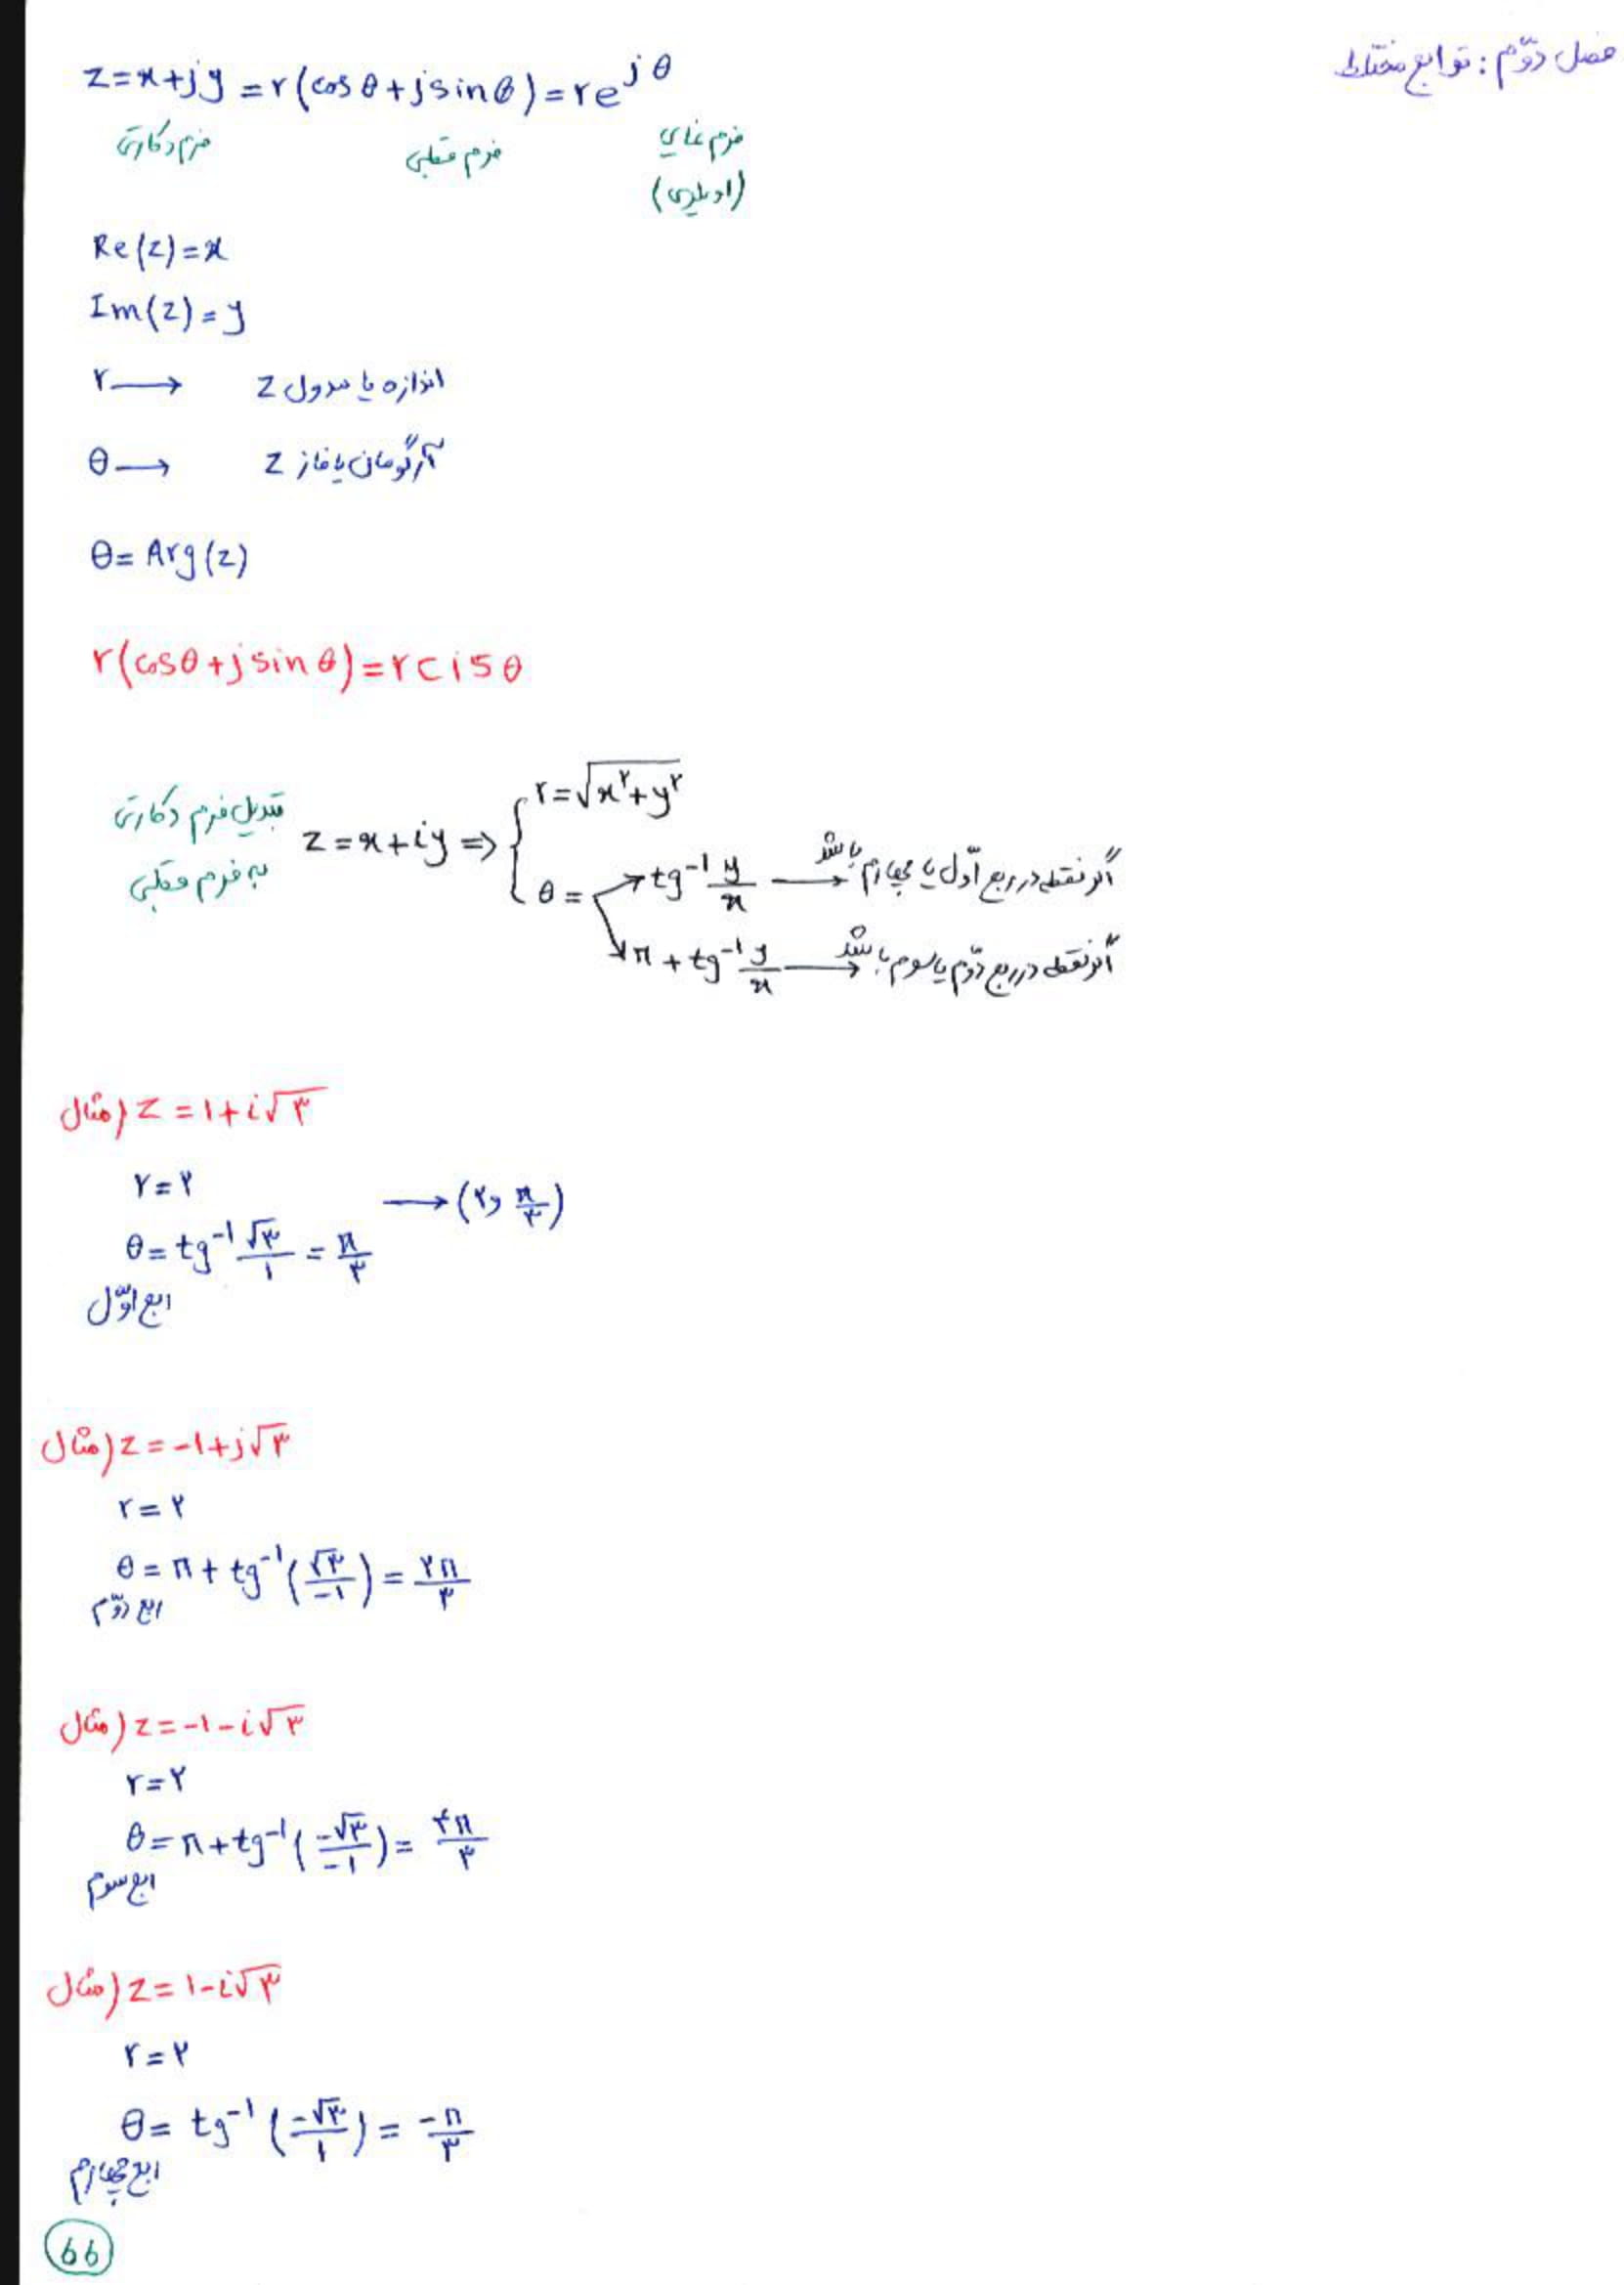 فصل دوّم : توابع مختلط
z = x + jy = r(cos θ + j sin θ) = re^{jθ}
فرم دکارتی    فرم قطبی    فرم نمایی
(اویلری)
Re(z) = x
Im(z) = y
r ⟶ اندازه یا مدول z
θ ⟶ آرگومان یا فاز z
θ = Arg(z)
r(cosθ + j sin θ) = r cis θ
تبدیل فرم دکارتی
به فرم قطبی
z = x + iy ⇒ { r = √(x^۲ + y^۲)
θ = tg^{-۱} y/x ⟶ اگر نقطه در ربع اوّل یا چهارم باشد
π + tg^{-۱} y/x ⟶ اگر نقطه در ربع دوّم یا سوم باشد
مثال) z = ۱ + i√۳
r = ۲
θ = tg^{-۱} √۳/۱ = π/۳ ⟶ (۲ و π/۳)
ربع اوّل
مثال) z = -۱ + j√۳
r = ۲
θ = π + tg^{-۱}(√۳/-۱) = ۲π/۳
ربع دوّم
مثال) z = -۱ - i√۳
r = ۲
θ = π + tg^{-۱}(-√۳/-۱) = ۴π/۳
ربع سوم
مثال) z = ۱ - i√۳
r = ۲
θ = tg^{-۱}(-√۳/۱) = -π/۳
ربع چهارم
66